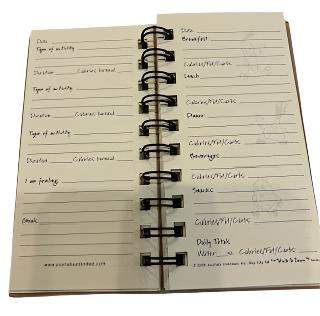 Date
Type of activity
Duration Calories burned
Type of activity
Duration Calories burned
Type of activity
Duration Calories burned
I am feeling:
Goals:
www.journalsunlimited.com
Date
Breakfast
Calories/Fat/Carbs:
Lunch
Calories/Fat/Carbs:
Dinner
Calories/Fat/Carbs:
Beverages
Snacks
Calories/Fat/Carbs:
Daily Totals
Water Calories/Fat/Carbs: